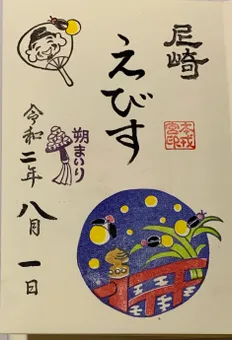 尼崎
えびす
朔まいり
令和二年
八月一日